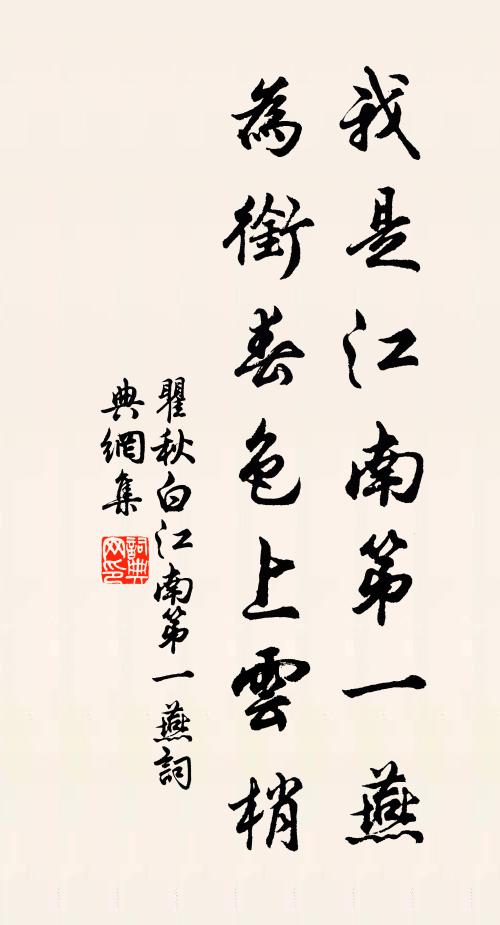 我是江南第一燕
為銜春色上雲梢
瞿秋白江南第一燕詞
典網集
詞典網印